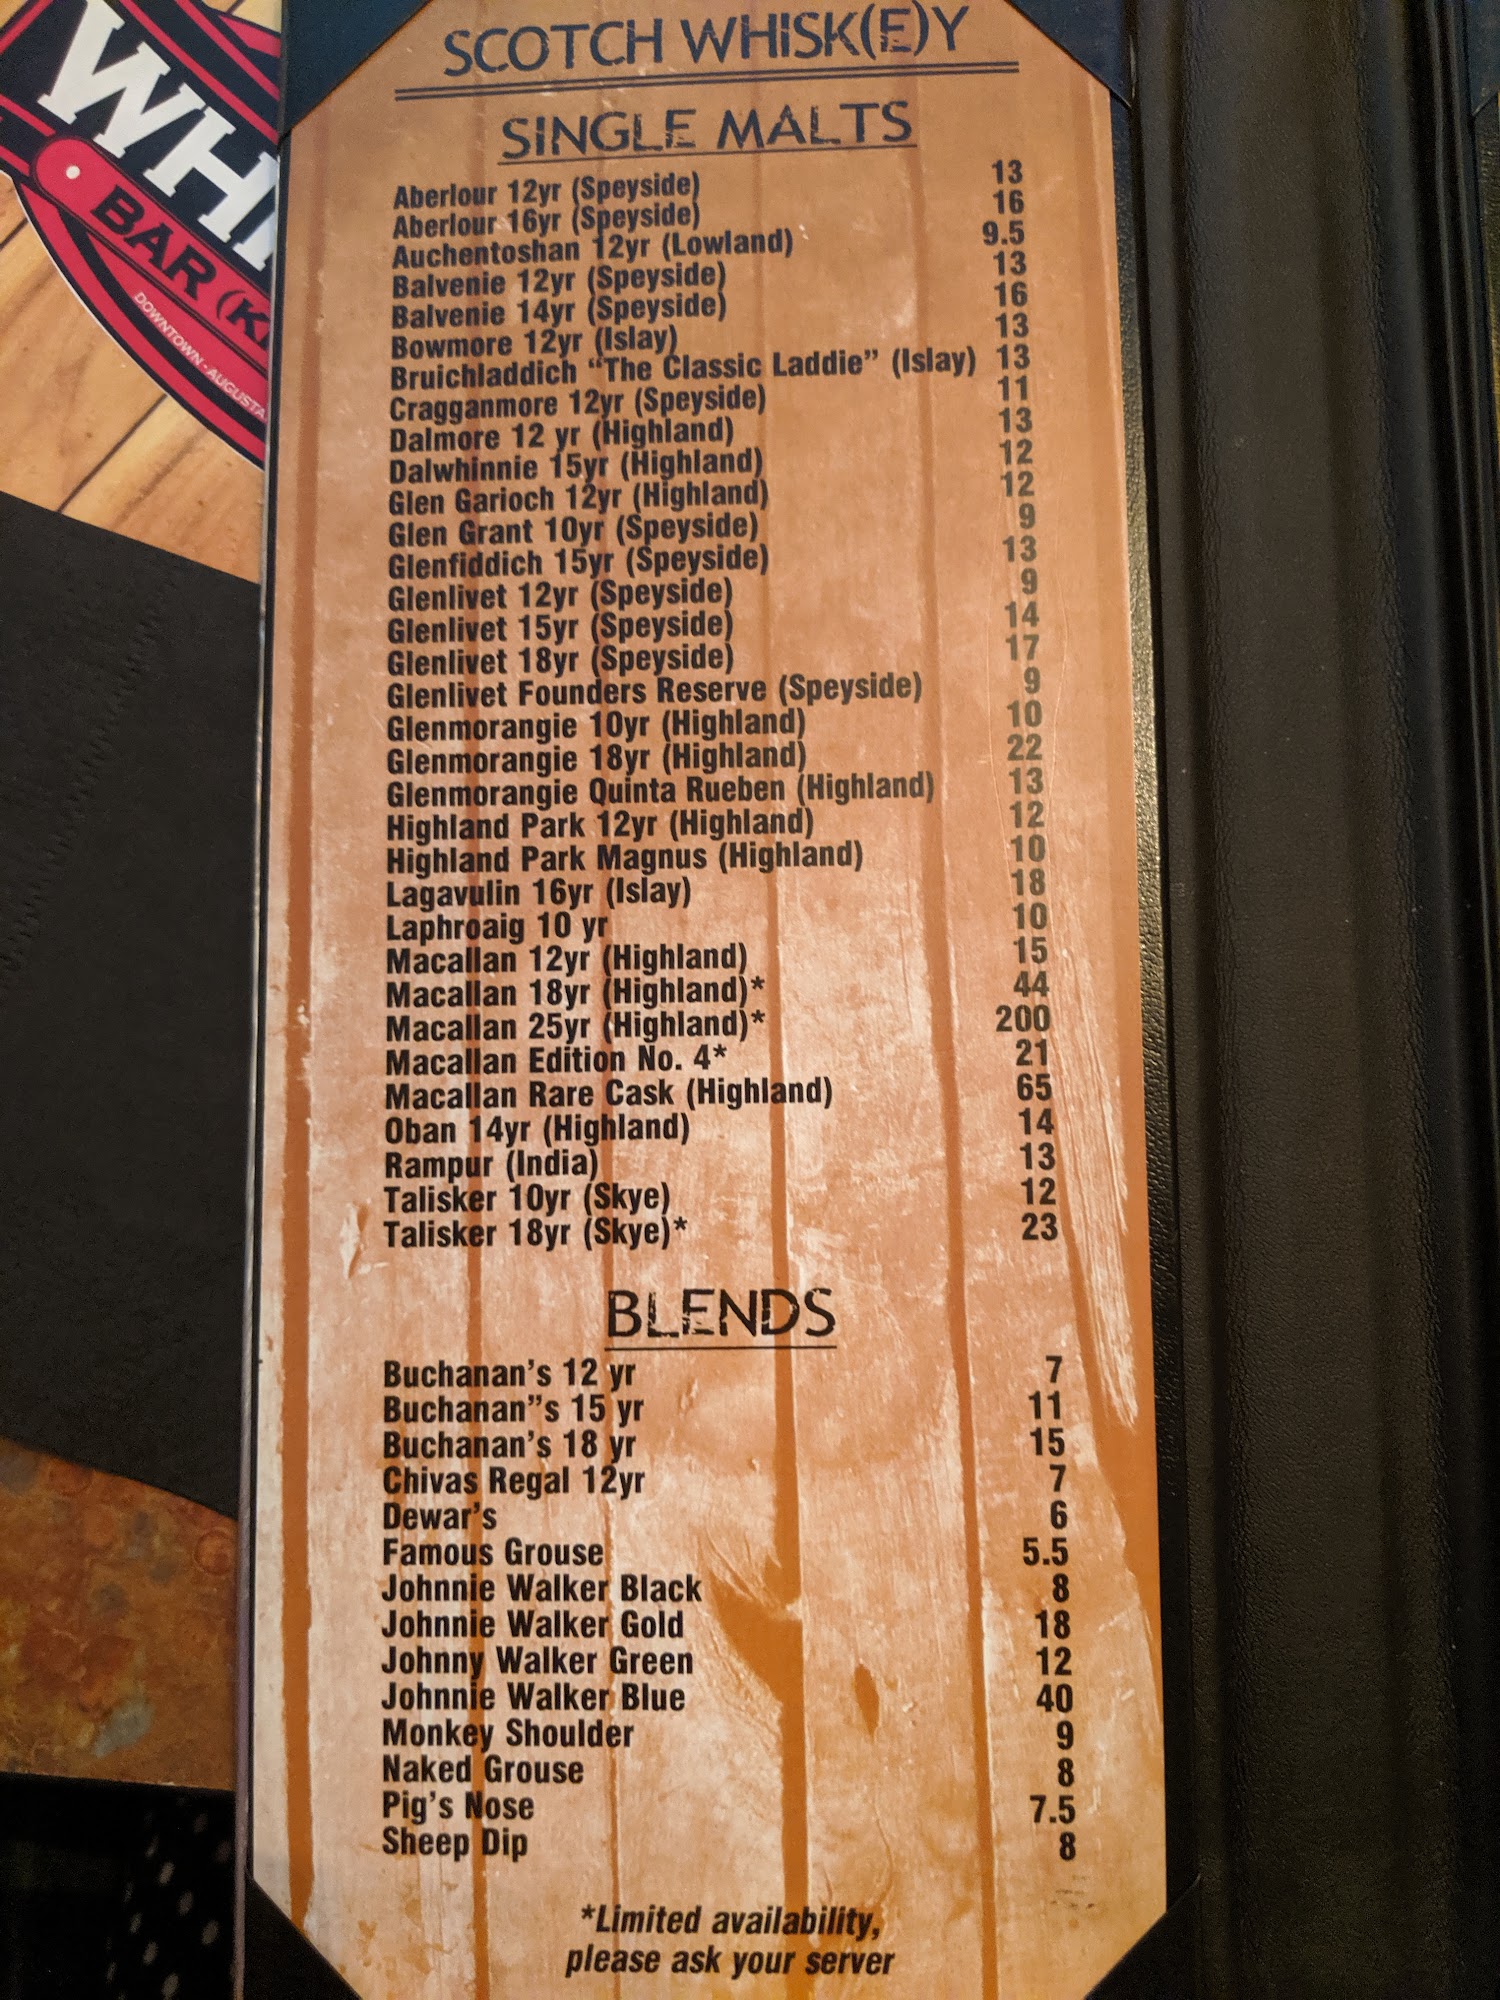 WHI
BAR (KI
DOWNTOWN - AUGUSTA
SCOTCH WHISK(E)Y
SINGLE MALTS
Aberlour 12yr (Speyside) 13
Aberlour 16yr (Speyside) 16
Auchentoshan 12yr (Lowland) 9.5
Balvenie 12yr (Speyside) 13
Balvenie 14yr (Speyside) 16
Bowmore 12yr (Islay) 13
Bruichladdich “The Classic Laddie” (Islay) 13
Cragganmore 12yr (Speyside) 11
Dalmore 12 yr (Highland) 13
Dalwhinnie 15yr (Highland) 12
Glen Garioch 12yr (Highland) 12
Glen Grant 10yr (Speyside) 9
Glenfiddich 15yr (Speyside) 13
Glenlivet 12yr (Speyside) 9
Glenlivet 15yr (Speyside) 14
Glenlivet 18yr (Speyside) 17
Glenlivet Founders Reserve (Speyside) 9
Glenmorangie 10yr (Highland) 10
Glenmorangie 18yr (Highland) 22
Glenmorangie Quinta Rueben (Highland) 13
Highland Park 12yr (Highland) 12
Highland Park Magnus (Highland) 10
Lagavulin 16yr (Islay) 18
Laphroaig 10 yr 10
Macallan 12yr (Highland) 15
Macallan 18yr (Highland)* 44
Macallan 25yr (Highland)* 200
Macallan Edition No. 4* 21
Macallan Rare Cask (Highland) 65
Oban 14yr (Highland) 14
Rampur (India) 13
Talisker 10yr (Skye) 12
Talisker 18yr (Skye)* 23
BLENDS
Buchanan’s 12 yr 7
Buchanan”s 15 yr 11
Buchanan’s 18 yr 15
Chivas Regal 12yr 7
Dewar’s 6
Famous Grouse 5.5
Johnnie Walker Black 8
Johnnie Walker Gold 18
Johnny Walker Green 12
Johnnie Walker Blue 40
Monkey Shoulder 9
Naked Grouse 8
Pig’s Nose 7.5
Sheep Dip 8
*Limited availability,
please ask your server